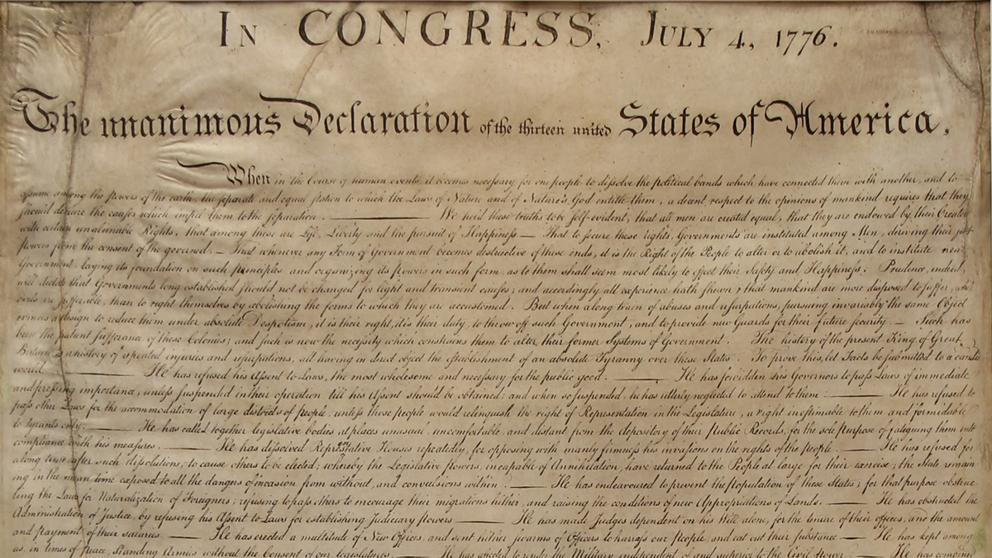 In CONGRESS, July 4, 1776.
The unanimous Declaration of the thirteen united States of America,
When in the Course of human events, it becomes necessary for one people to dissolve the political bands which have connected them with another, and to
assume among the powers of the earth, the separate and equal station to which the Laws of Nature and of Nature's God entitle them, a decent respect to the opinions of mankind requires that they
should declare the causes which impel them to the separation. — We hold these truths to be self-evident, that all men are created equal, that they are endowed by their Creator
with certain unalienable Rights, that among these are Life, Liberty and the pursuit of Happiness — That to secure these rights, Governments are instituted among Men, deriving their just
powers from the consent of the governed, — That whenever any Form of Government becomes destructive of these ends, it is the Right of the People to alter or to abolish it, and to institute new
Government, laying its foundation on such principles and organizing its powers in such form, as to them shall seem most likely to effect their Safety and Happiness. Prudence, indeed,
will dictate that Governments long established should not be changed for light and transient causes; and accordingly all experience hath shewn, that mankind are more disposed to suffer, while
evils are sufferable, than to right themselves by abolishing the forms to which they are accustomed. But when a long train of abuses and usurpations, pursuing invariably the same Object
evinces a design to reduce them under absolute Despotism, it is their right, it is their duty, to throw off such Government, and to provide new Guards for their future security. — Such has
been the patient sufferance of these Colonies; and such is now the necessity which constrains them to alter their former Systems of Government. The history of the present King of Great
Britain is a history of repeated injuries and usurpations, all having in direct object the establishment of an absolute Tyranny over these States. To prove this, let Facts be submitted to a candid
world. — He has refused his Assent to Laws, the most wholesome and necessary for the public good. — He has forbidden his Governors to pass Laws of immediate
and pressing importance, unless suspended in their operation till his Assent should be obtained; and when so suspended, he has utterly neglected to attend to them. — He has refused to
pass other Laws for the accommodation of large districts of people, unless those people would relinquish the right of Representation in the Legislature, a right inestimable to them and formidable
to tyrants only. — He has called together legislative bodies at places unusual, uncomfortable, and distant from the depository of their public Records, for the sole purpose of fatiguing them into
compliance with his measures. — He has dissolved Representative Houses repeatedly, for opposing with manly firmness his invasions on the rights of the people. — He has refused for
a long time, after such dissolutions, to cause others to be elected; whereby the Legislative powers, incapable of Annihilation, have returned to the People at large for their exercise; the State remain
ing in the mean time exposed to all the dangers of invasion from without, and convulsions within. — He has endeavoured to prevent the population of these States; for that purpose obstruc
ting the Laws for Naturalization of Foreigners; refusing to pass others to encourage their migrations hither, and raising the conditions of new Appropriations of Lands. — He has obstructed the
Administration of Justice, by refusing his Assent to Laws for establishing Judiciary powers. — He has made Judges dependent on his Will alone, for the tenure of their offices, and the amount
and payment of their salaries. — He has erected a multitude of New Offices, and sent hither swarms of Officers to harrass our people, and eat out their substance. — He has kept among
us, in times of peace, Standing Armies without the Consent of our legislatures.